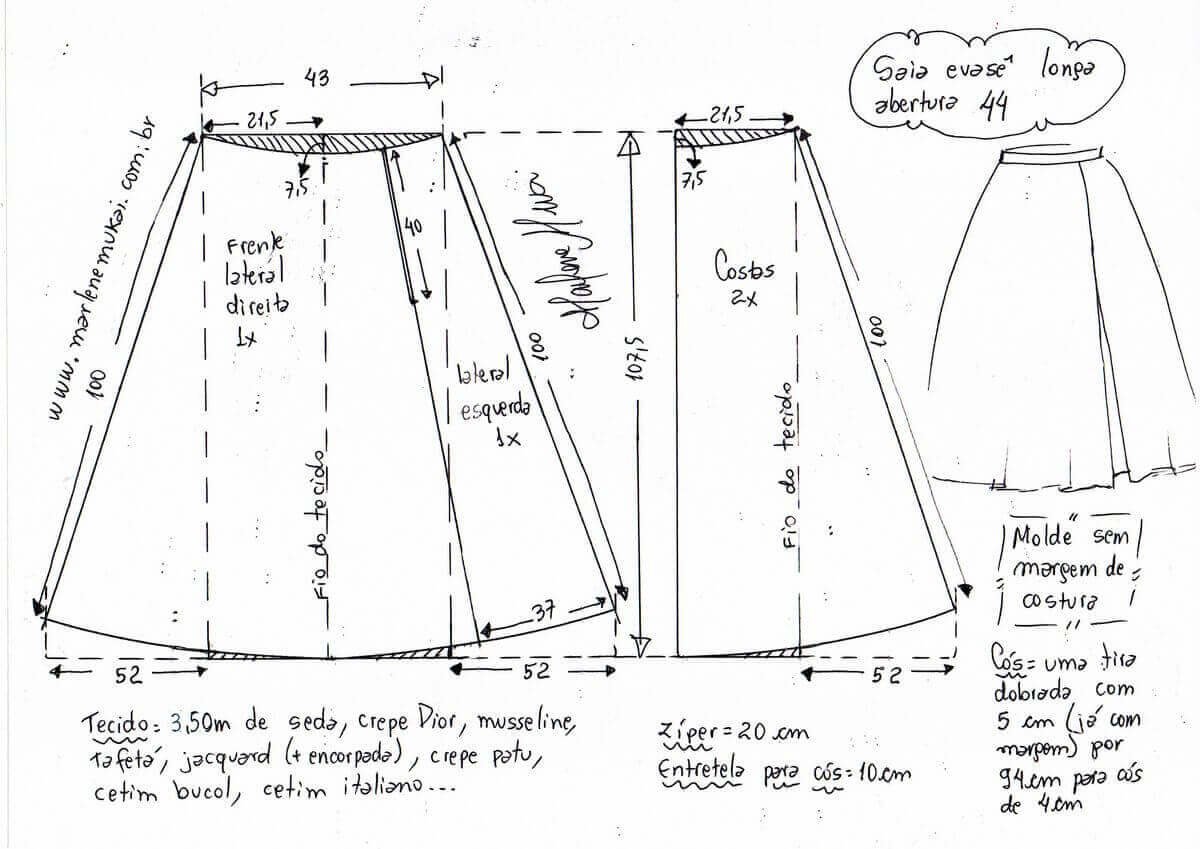 Saia evasê longa
abertura 44
www.marlenemukai.com.br
43
21,5
7,5
40
Frente
lateral
direita
1x
Fio do tecido
100
lateral
esquerda
1x
100
37
52
52
107,5
21,5
7,5
Costas
2x
Fio do tecido
100
52
Molde sem
margem de
costura
Tecido = 3,50m de seda, crepe Dior, musseline,
tafetá, jacquard (+ encorpada), crepe patu,
cetim bucol, cetim italiano...
Zíper = 20 cm
Entretela para cós = 10 cm
Cós = uma tira
dobrada com
5 cm (já com
margem) por
94 cm para cós
de 4 cm